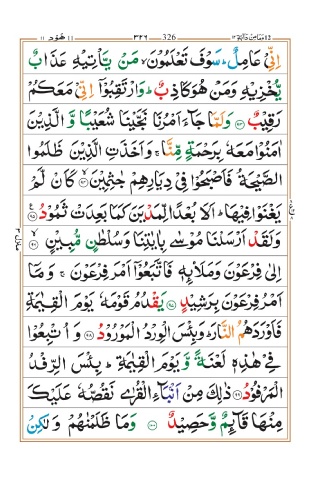 ١١ هُوْد ١١ ٣٢٦ 326 وَمَا مِنْ دَآبَّةٍ ١٢
اِنِّىْ عَامِلٌ ؕ سَوْفَ تَعْلَمُوْنَ ۙ مَنْ يَّاْتِيْهِ عَذَابٌ
يُّخْزِيْهِ وَمَنْ هُوَ كَاذِبٌ ؕ وَارْتَقِبُوْۤا اِنِّىْ مَعَكُمْ
رَقِيْبٌ ۝۹۳ وَلَمَّا جَآءَ اَمْرُنَا نَجَّيْنَا شُعَيْبًا وَّالَّذِيْنَ
اٰمَنُوْا مَعَهٗ بِرَحْمَةٍ مِّنَّا ۚ وَاَخَذَتِ الَّذِيْنَ ظَلَمُوا
الصَّيْحَةُ فَاَصْبَحُوْا فِىْ دِيَارِهِمْ جٰثِمِيْنَ ۙ۝۹۴ كَاَنْ لَّمْ
يَغْنَوْا فِيْهَا ؕ اَلَا بُعْدًا لِّمَدْيَنَ كَمَا بَعِدَتْ ثَمُوْدُ ۝۹۵
وَلَقَدْ اَرْسَلْنَا مُوْسٰى بِاٰيٰتِنَا وَسُلْطٰنٍ مُّبِيْنٍ ۙ۝۹۶
اِلٰى فِرْعَوْنَ وَمَلَا۟ئِهٖ فَاتَّبَعُوْۤا اَمْرَ فِرْعَوْنَ ۚ وَمَاۤ
اَمْرُ فِرْعَوْنَ بِرَشِيْدٍ ۝۹۷ يَقْدُمُ قَوْمَهٗ يَوْمَ الْقِيٰمَةِ
فَاَوْرَدَهُمُ النَّارَ ؕ وَبِئْسَ الْوِرْدُ الْمَوْرُوْدُ ۝۹۸ وَاُتْبِعُوْا
فِىْ هٰذِهٖ لَعْنَةً وَّيَوْمَ الْقِيٰمَةِ ؕ بِئْسَ الرِّفْدُ
الْمَرْفُوْدُ ۝۹۹ ذٰلِكَ مِنْ اَنْۢبَآءِ الْقُرٰى نَقُصُّهٗ عَلَيْكَ
مِنْهَا قَآئِمٌ وَّحَصِيْدٌ ۝۱۰۰ وَمَا ظَلَمْنٰهُمْ وَلٰكِنْ